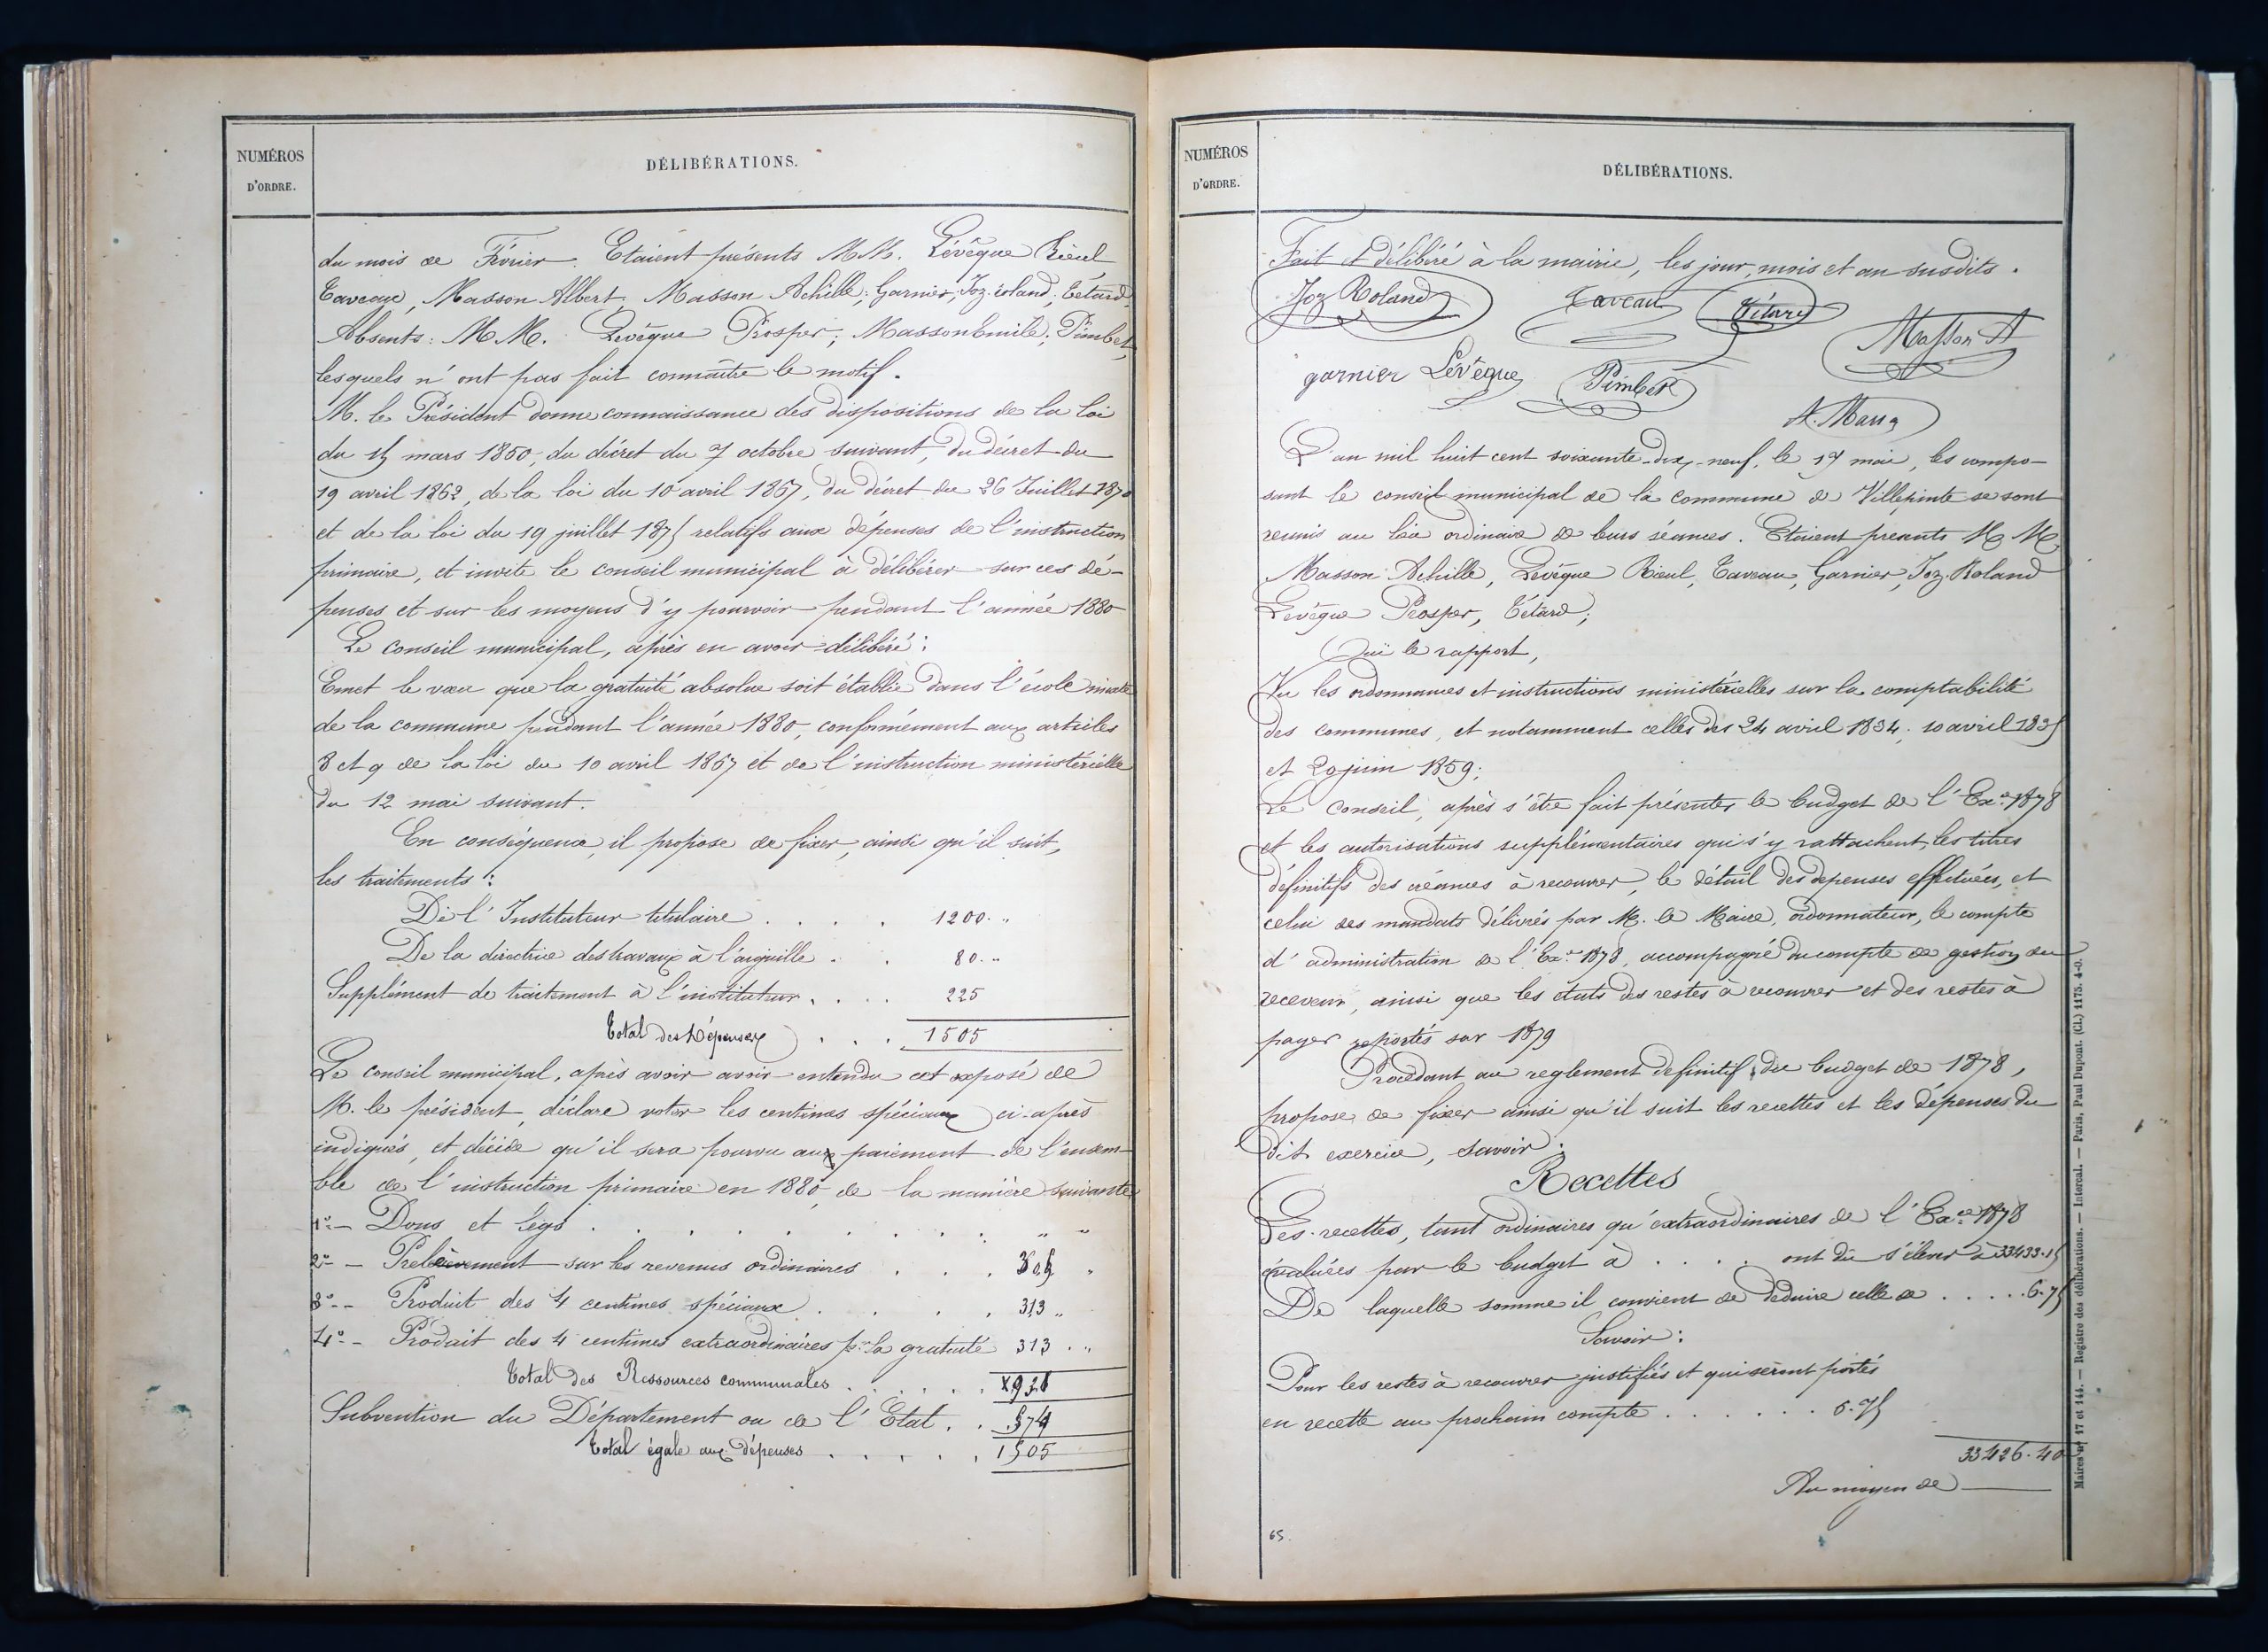 NUMÉROS
D'ORDRE.
DÉLIBÉRATIONS.
du mois de Février. Etaient présents M.M. Lévêque Rieul
Taveau, Masson Albert, Masson Achille; Garnier; Joz. roland; Tétard,
Absents: M.M. Levêque Prosper; Masson Emile; Pimbet,
lesquels n'ont pas fait connaître le motif.
M. le Président donne connaissance des dispositions de la loi
du 15 mars 1850, du décret du 7 octobre suivant, du décret du
19 avril 1862, de la loi du 10 avril 1867, du décret du 26 Juillet 1870
et de la loi du 19 juillet 1875 relatifs aux dépenses de l'instruction
primaire, et invite le conseil municipal à délibérer sur ces dé-
penses et sur les moyens d'y pourvoir pendant l'année 1880
Le conseil municipal, après en avoir délibéré:
Emet le vœu que la gratuité absolue soit établie dans l'école mixte
de la commune pendant l'année 1880, conformément aux articles
8 et 9 de la loi du 10 avril 1867 et de l'instruction ministérielle
du 12 mai suivant.
En conséquence, il propose de fixer, ainsi qu'il suit,
les traitements:
De l'Instituteur titulaire . . . . 1200. "
De la directrice des travaux à l'aiguille . . 80. "
Supplément de traitement à l'instituteur . . . . 225
Total des Dépenses . . . 1505
Le conseil municipal, après avoir avoir entendu cet exposé de
M. le président, déclare voter les centimes spéciaux ci-après
indiqués, et décide qu'il sera pourvu aux paiement de l'ensem-
ble de l'instruction primaire en 1880 de la manière suivante
1° — Dons et legs . . . . . . . . . " "
2° — Prelèvement sur les revenus ordinaires . . . 305 "
3° — Produit des 4 centimes spéciaux . . . . 313 "
4° — Produit des 4 centimes extraordinaires pr la gratuité 313 . "
Total des Ressources communales . . . . . 931
Subvention du Département ou de l'Etat . . 574
Total égale aux dépenses . . . . . 1505
NUMÉROS
D'ORDRE.
DÉLIBÉRATIONS.
Fait et délibéré à la mairie, les jour, mois et an susdits.
Joz Roland Taveau Tétard
Masson A
garnier Lévêque Pimbet
A. Masson
L'an mil huit cent soixante-dix-neuf, le 17 mai, les compo-
sant le conseil municipal de la commune de Villepinte se sont
reunis au lieu ordinaire de leurs séances. Etaient presents M M
Masson Achille, Levêque Rieul, Taveau, Garnier, Joz. Roland
Levêque Prosper, Tétard;
Ouï le rapport,
Vu les ordonnances et instructions ministérielles sur la comptabilité
des communes, et notamment celles des 24 avril 1834; 10 avril 1835
et 20 juin 1859;
Le Conseil, après s'être fait présenter le budget de l'Exce 1878
et les autorisations supplémentaires qui s'y rattachent, les titres
définitifs des créances à recouvrer, le détail des depenses effectuées, et
celui des mandats délivrés par M. le Maire, ordonnateur, le compte
d'administration de l'Exce 1878, accompagné du compte de gestion du
receveur, ainsi que les états des restes à recouvrer et des restes à
payer reportés sur 1879
Procédant au reglement definitif du budget de 1878,
propose de fixer ainsi qu'il suit les recettes et les dépenses du
dit exercice, savoir:
Recettes
Les recettes, tant ordinaires qu'extraordinaires de l'Exce 1878
évaluées par le budget à . . . . ont dû s'élever à 33433.15
De laquelle somme il convient de déduire celle de . . . . . 6.75
Savoir:
Pour les restes à recouvrer justifiés et qui seront portés
en recette au prochain compte . . . . . . 6.75
33426.40
Au moyen de
65.
Maires nos 17 et 144. — Registre des délibérations. — Intercal. — Paris, Paul Dupont. (Cl.) 1175. 4-0.